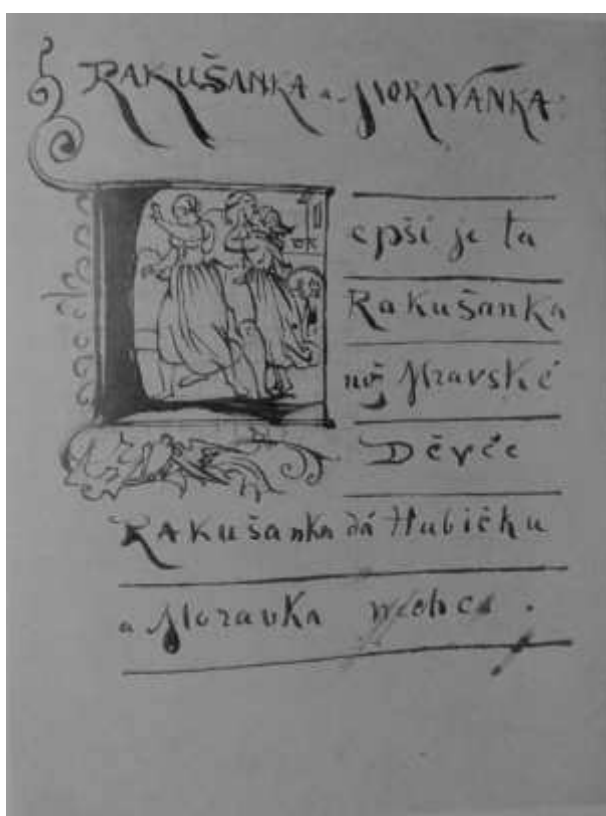 RAKUŠANKA a MORAVANKA.
Lepší je ta
Rakušanka
než Mravské
Děvče
RAKušanka dá Hubičku
a Moravka nechce.